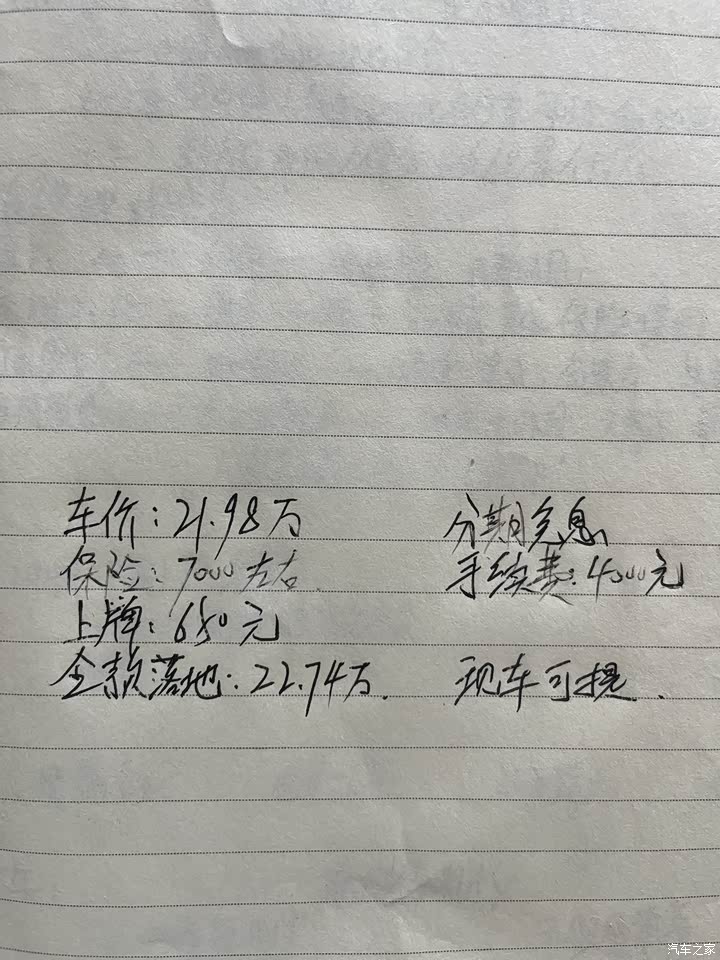 车价：21.98万
分期免息
保险：7000左右.
手续费：4000元
上牌：650元
全款落地：22.74万.
现车可提.
汽车之家